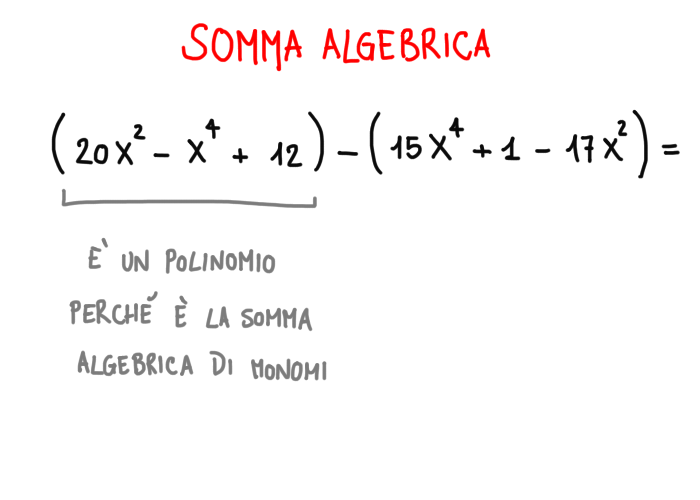 SOMMA ALGEBRICA
(20x² - x⁴ + 12) - (15x⁴ + 1 - 17x²) =
E' UN POLINOMIO
PERCHÉ È LA SOMMA
ALGEBRICA DI MONOMI